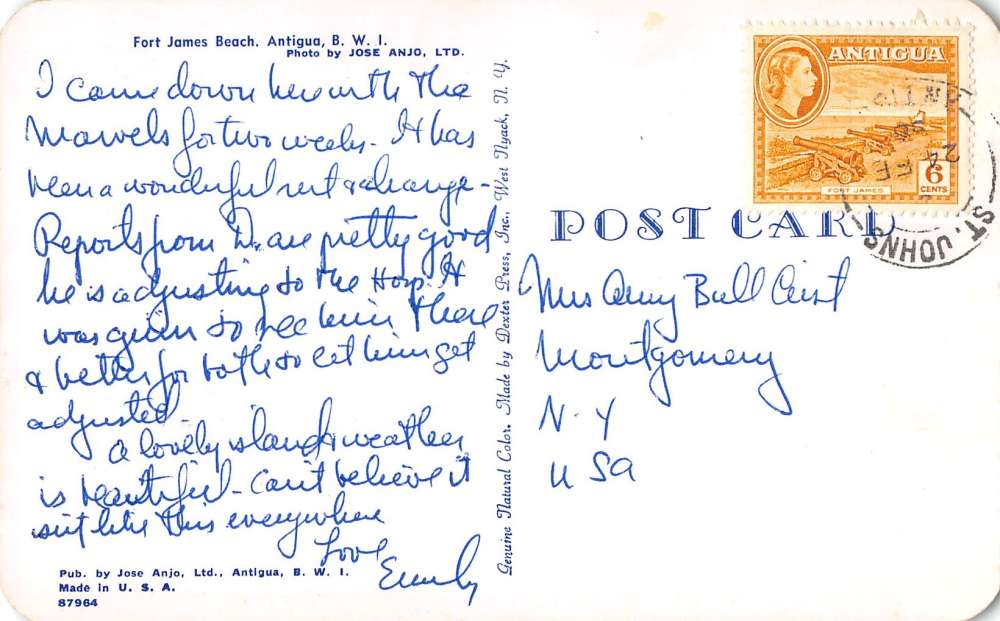 Fort James Beach. Antigua, B. W. I.
Photo by JOSE ANJO, LTD.
I came down here with the
Marvels for two weeks - It has
been a wonderful rest & change -
Reports from D. are pretty good
he is adjusting to the Hosp. It
was grim to see him there
& better for both to let him get
adjusted -
a lovely island & weather
is beautiful - Can't believe it
isn't like this everywhere
Love
Emily
Pub. by Jose Anjo, Ltd., Antigua, B. W. I.
Made in U. S. A.
87964
Genuine Natural Color. Made by Dexter Press, Inc., West Nyack, N. Y.
ANTIGUA
FORT JAMES
6
CENTS
24 FE
ST. JOHNS
POST CARD
Mrs Amy Bull Crist
Montgomery
N-Y
USA